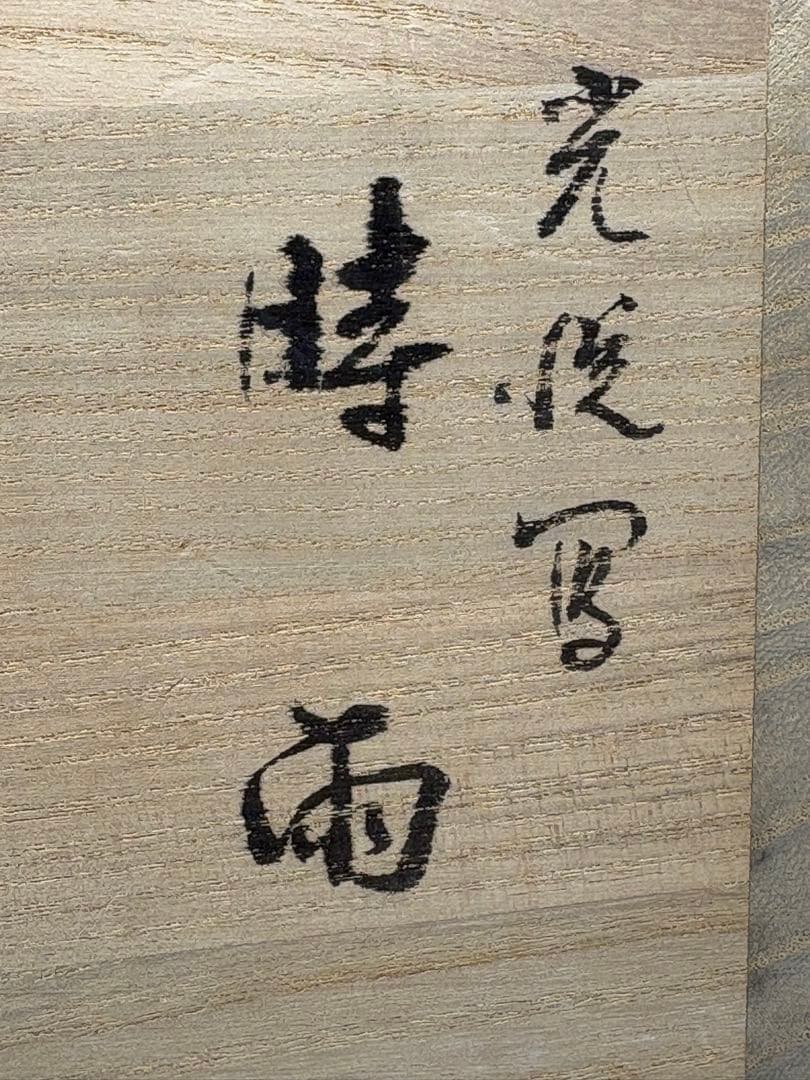 光悦写
時雨